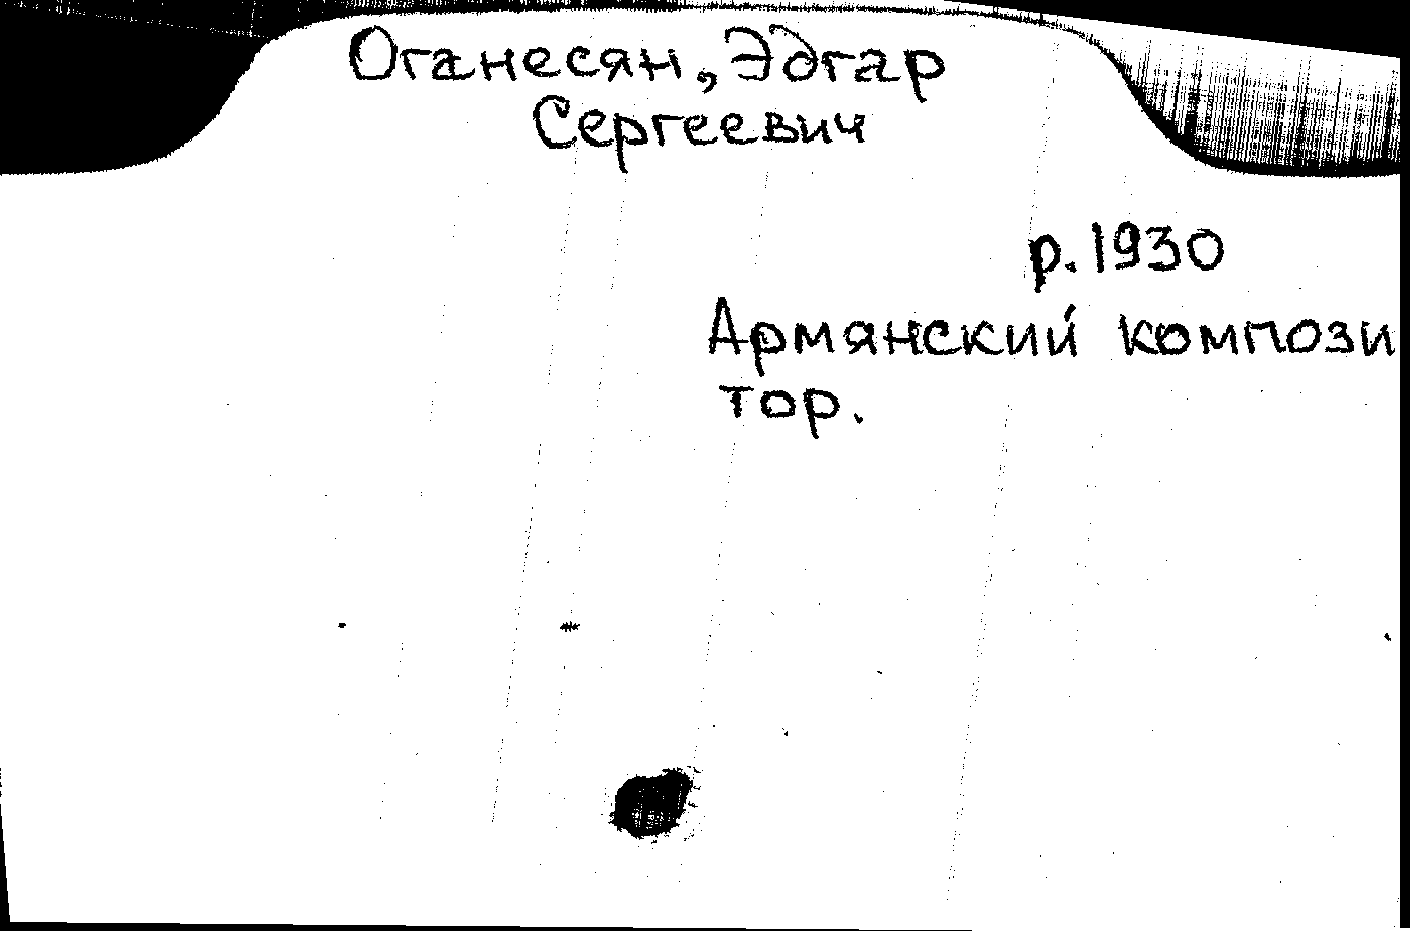 Оганесян, Эдгар
Сергеевич
р. 1930
Армянский компози
тор.